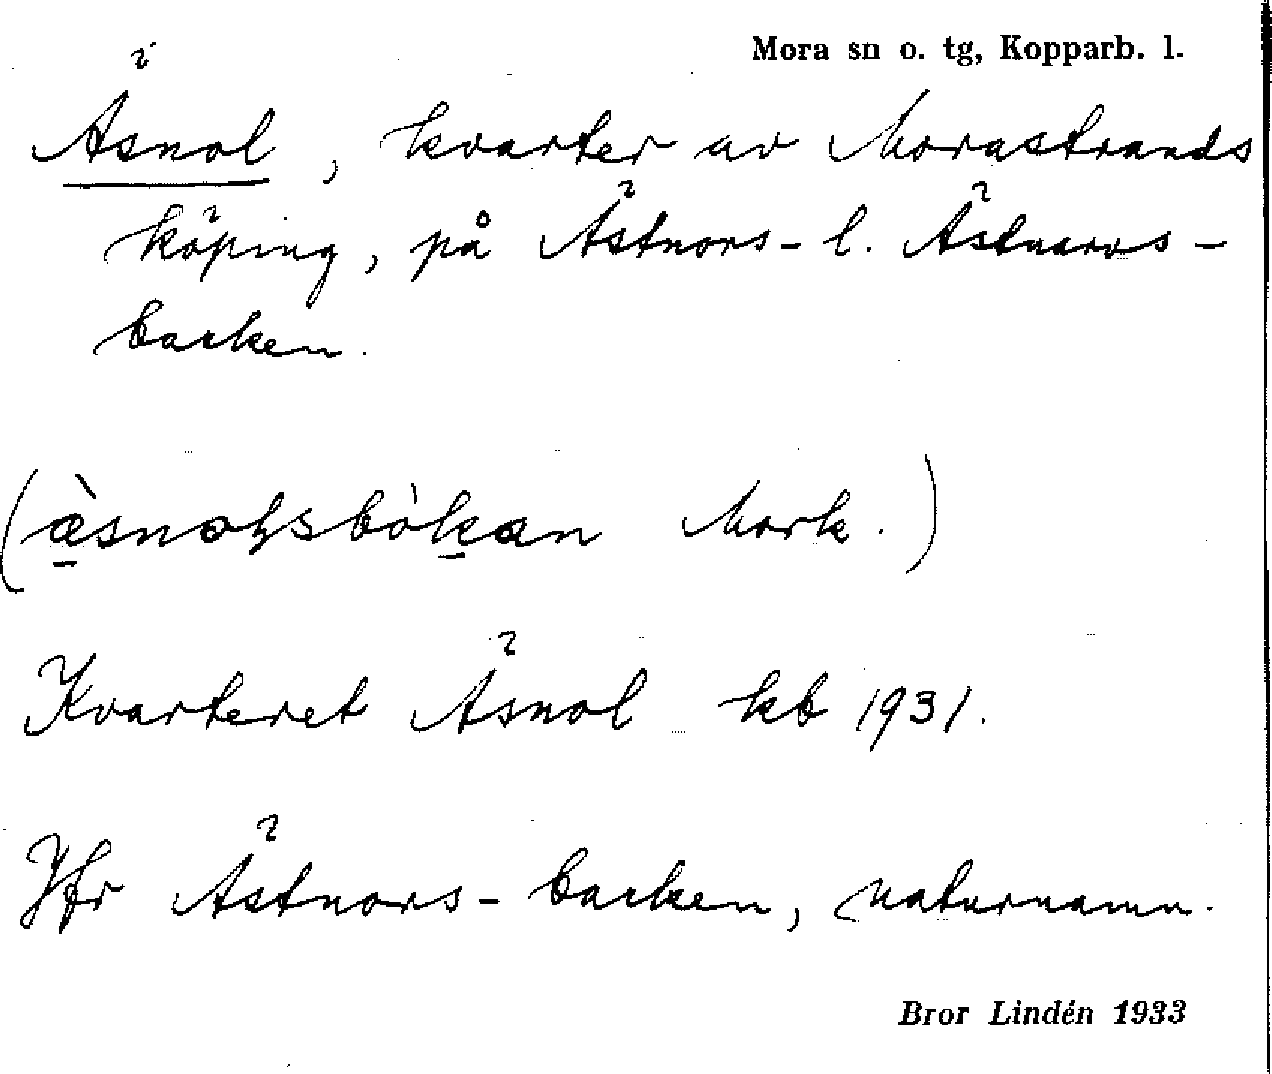 Mora sn o. tg, Kopparb. l.
Äsnol, kvarter av Morastrands
köping, på Ästnors- l. Ästnarvs-
backen.
Mork.)
Kvarteret Äsnol kb 1931.
Jfr Ästnors-backen, naturnamn.
Bror Lindén 1933